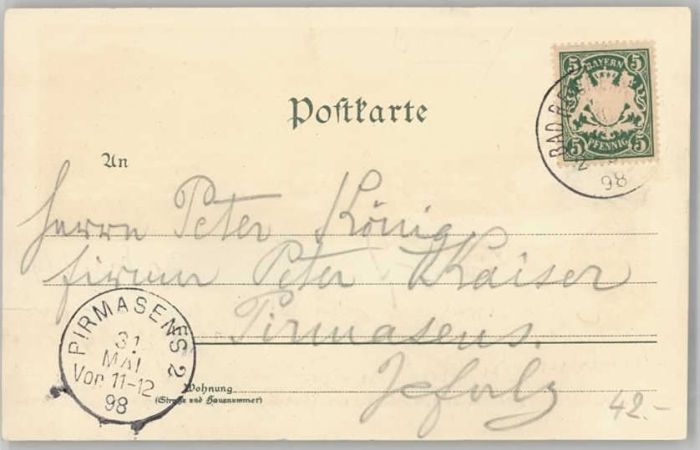 Postkarte
5 BAYERN 5
5 PFENNIG 5
BAD
2
98
An
Herrn Peter König
firma Peter Kaiser
Pirmasens.
Pfalz
PIRMASENS 2
31
MAI
Vor. 11-12
98
Wohnung
(Straße und Hausnummer)
42.-